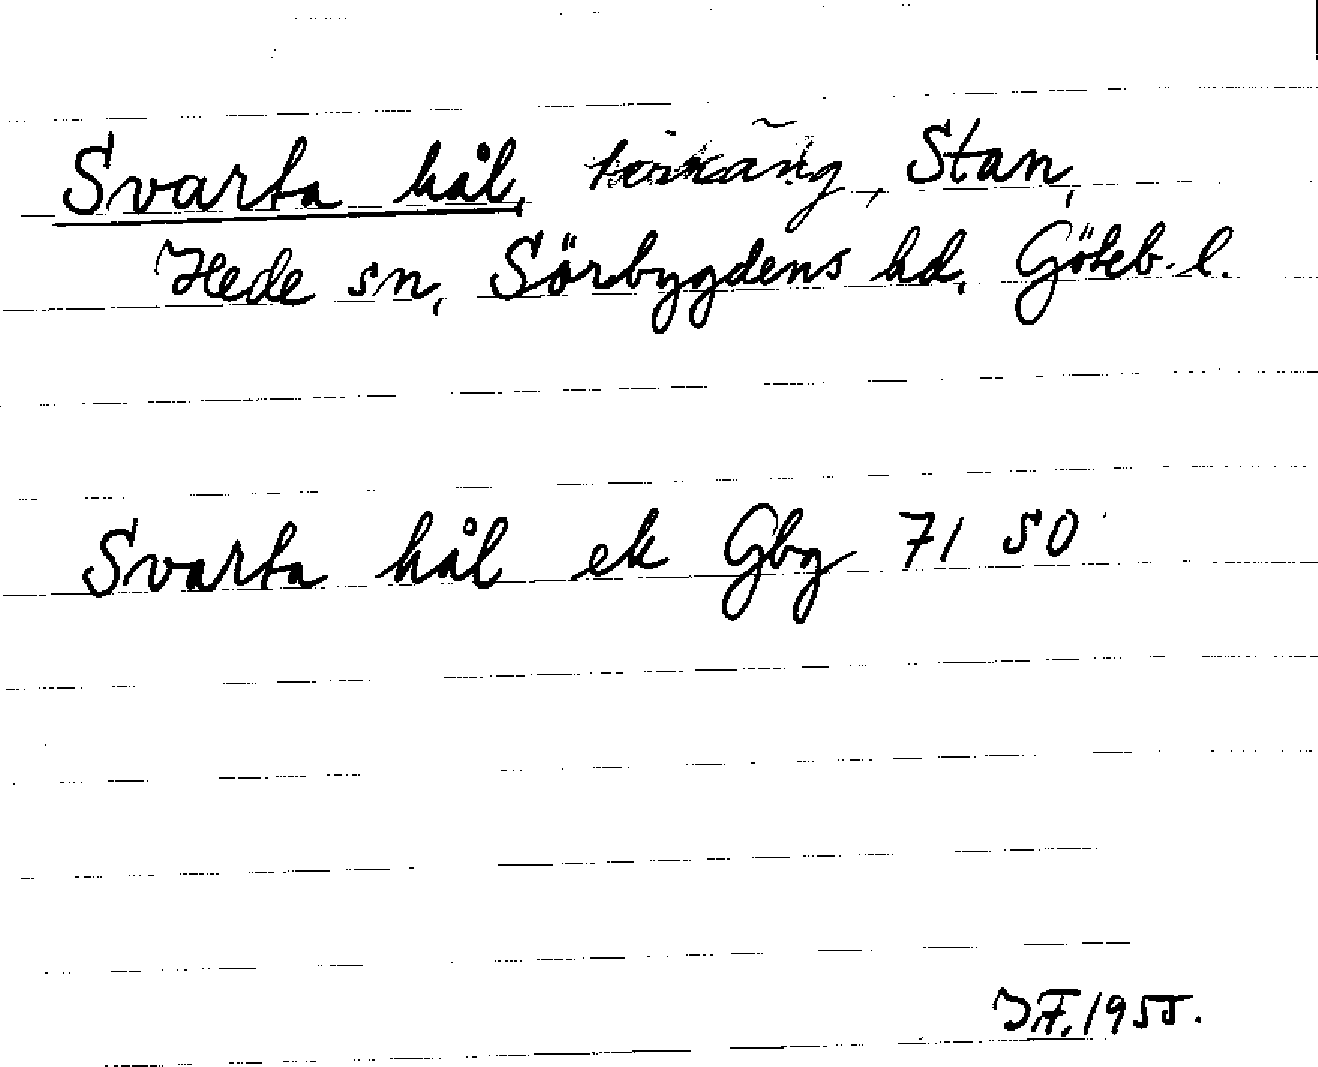 Svarta hål, torkäng, Stan,
Hede sn, Sörbygdens hd, Göteb. l.
Svarta hål ek Gbg 71 50
IF. 1955.